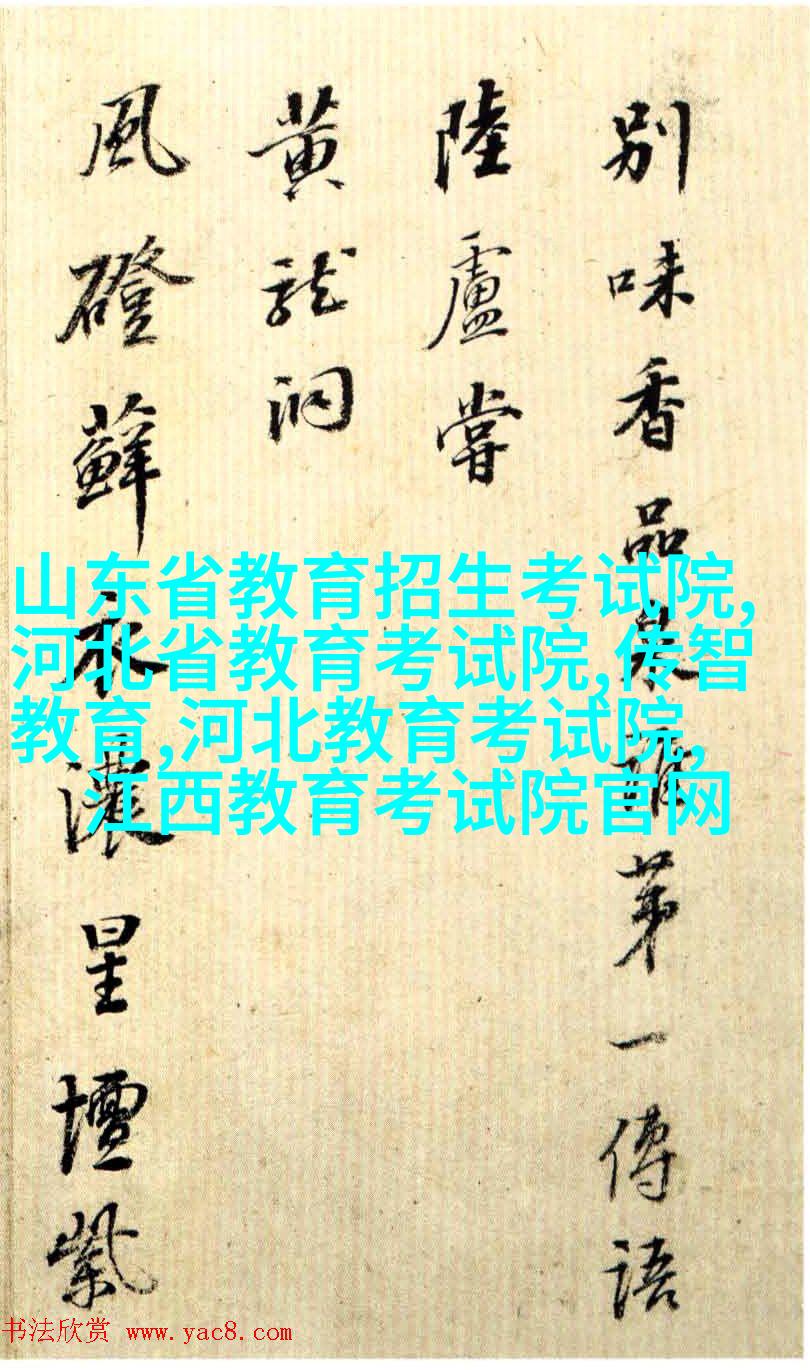 別味香品泉第一傳語
陸盧嘗
黃龍洞
風磴蘚衣濃星壇紫
山东省教育招生考试院,
河北省教育考试院,传智
教育,河北教育考试院,
江西教育考试院官网
书法欣赏 www.yac8.com